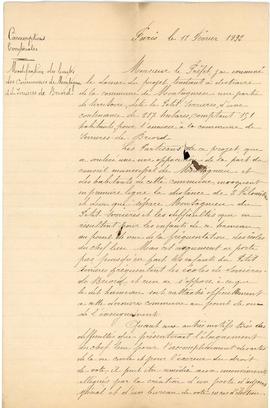 Circonscriptions
Temporales
Modification des limites
des Communes de Montagnieu
& de Serrières de Briord
Paris le 11 Février 1892
Monsieur le Préfet, j'ai examiné
le dossier du projet tendant à distraire
de la commune de Montagnieu une partie
de territoire, dite de Petit Serrières, d'une
contenance de 287 hectares, comptant 151
habitants pour l'annexer à la commune de
Serrières de Briord.
Les Partisans de ce projet qui
a soulevé une vive opposition de la part du
conseil municipal de Montagnieu et
des habitants de cette commune, invoquent
en première ligne la distance de
et demi qui sépare Montagnieu de
Petit Serrières et les difficultés qui en
résultent pour les enfants de ce hameau
au point de vue de la fréquentation des écoles
du chef lieu. Mais cet argument ne porte
pas puisqu'en fait les enfants du Petit
Serrières fréquentent les écoles de Serrières
de Briord et rien ne s'oppose à ce que
le dit hameau soit rattaché officiellement
à cette dernière commune au point de vue
de l'enseignement.
Quant aux autres motifs tirés des
difficultés que présenterait l'éloignement
du chef lieu pour l'accomplissement des actes
de la vie civile et pour l'exercice du droit
de vote, il peut être remédié aux inconvénients
allégués par la création d'un poste d'adjoint
spécial et d'un bureau de vote